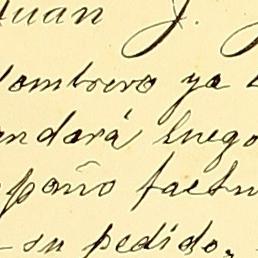 Juan J.
Sombrero ya
andará luego
paño factu
su pedido,